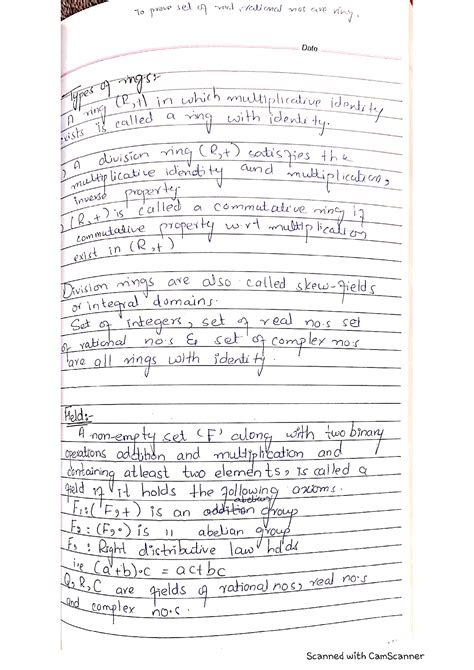 To prove set of real, rational nos are ring.
Date
Types of rings:-
A ring (R,+) in which multiplicative identity
exists is called a ring with identity.
) A division ring (R,+) satisfies the
multiplicative identity and multiplication,
inverse property.
) (R,+) is called a commutative ring if
commutative property w.r.t multiplication
exist in (R,+)
Division rings are also called skew-fields
or integral domains.
Set of integers, set of real no.s set
of rational no.s & set of complex no.s
are all rings with identity.
Field:-
A non-empty set 'F' along with two binary
operations addition and multiplication and
containing atleast two elements, is called a
field if it holds the following axioms.
abelian
F₁:(F,+) is an addition group
F₂:(F,•) is 11 abelian group
F₃: Right distributive law holds
i.e (a+b)•c = ac+bc
Q,R,C are fields of rational nos, real no.s
and complex no.s.
Scanned with CamScanner